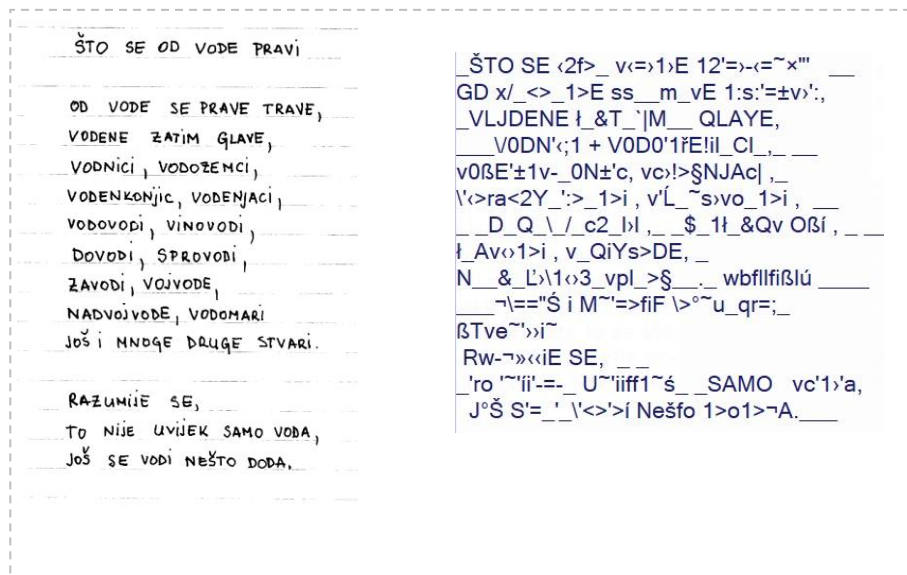 ŠTO SE OD VODE PRAVI
OD VODE SE PRAVE TRAVE,
VODENE ZATIM GLAVE,
VODNICI, VODOZEMCI,
VODENKONJIC, VODENJACI,
VODOVODI, VINOVODI,
DOVODI, SPROVODI,
ZAVODI, VOJVODE,
NADVOJVODE, VODOMARI
JOŠ I MNOGE DRUGE STVARI.
RAZUMIJE SE,
TO NIJE UVIJEK SAMO VODA,
JOŠ SE VODI NEŠTO DODA.
_ŠTO SE ‹2f>_ v‹=›1›E 12'=›-‹=~×"' __
GD x/_<>_1>E ss__m_vE 1:s:'=±v›':,
_VLJDENE ł_&T_`|M__ QLAYE,
___\/0DN'‹;1 + V0D0'1řE!iI_CI_,_ __
v0ßE'±1v-_0N±'c, vc›!>§NJAc| ,_
\'‹>ra<2Y_':>_1>i , v'Ĺ_~s›vo_1>i , __
_ _D_Q_\_/_c2_I›l ,_ _$_1ł_&Qv Oßí , _ __
ł_Av‹›1>i , v_QiYs>DE, _
N__&_Ľ›\1‹›3_vpl_>§__._ wbfllfißlú ____
___¬\=="Ś i M~'=>fiF \>°~u_qr=;_
ßTve~'››i~
Rw-¬»‹‹iE SE, _ _
_'ro '~'íi'-=-_ U~'iiff1~ś_ _SAMO vc'1›'a,
J°Š S'=_'_\'<>'>í Nešfo 1>o1>¬A.___